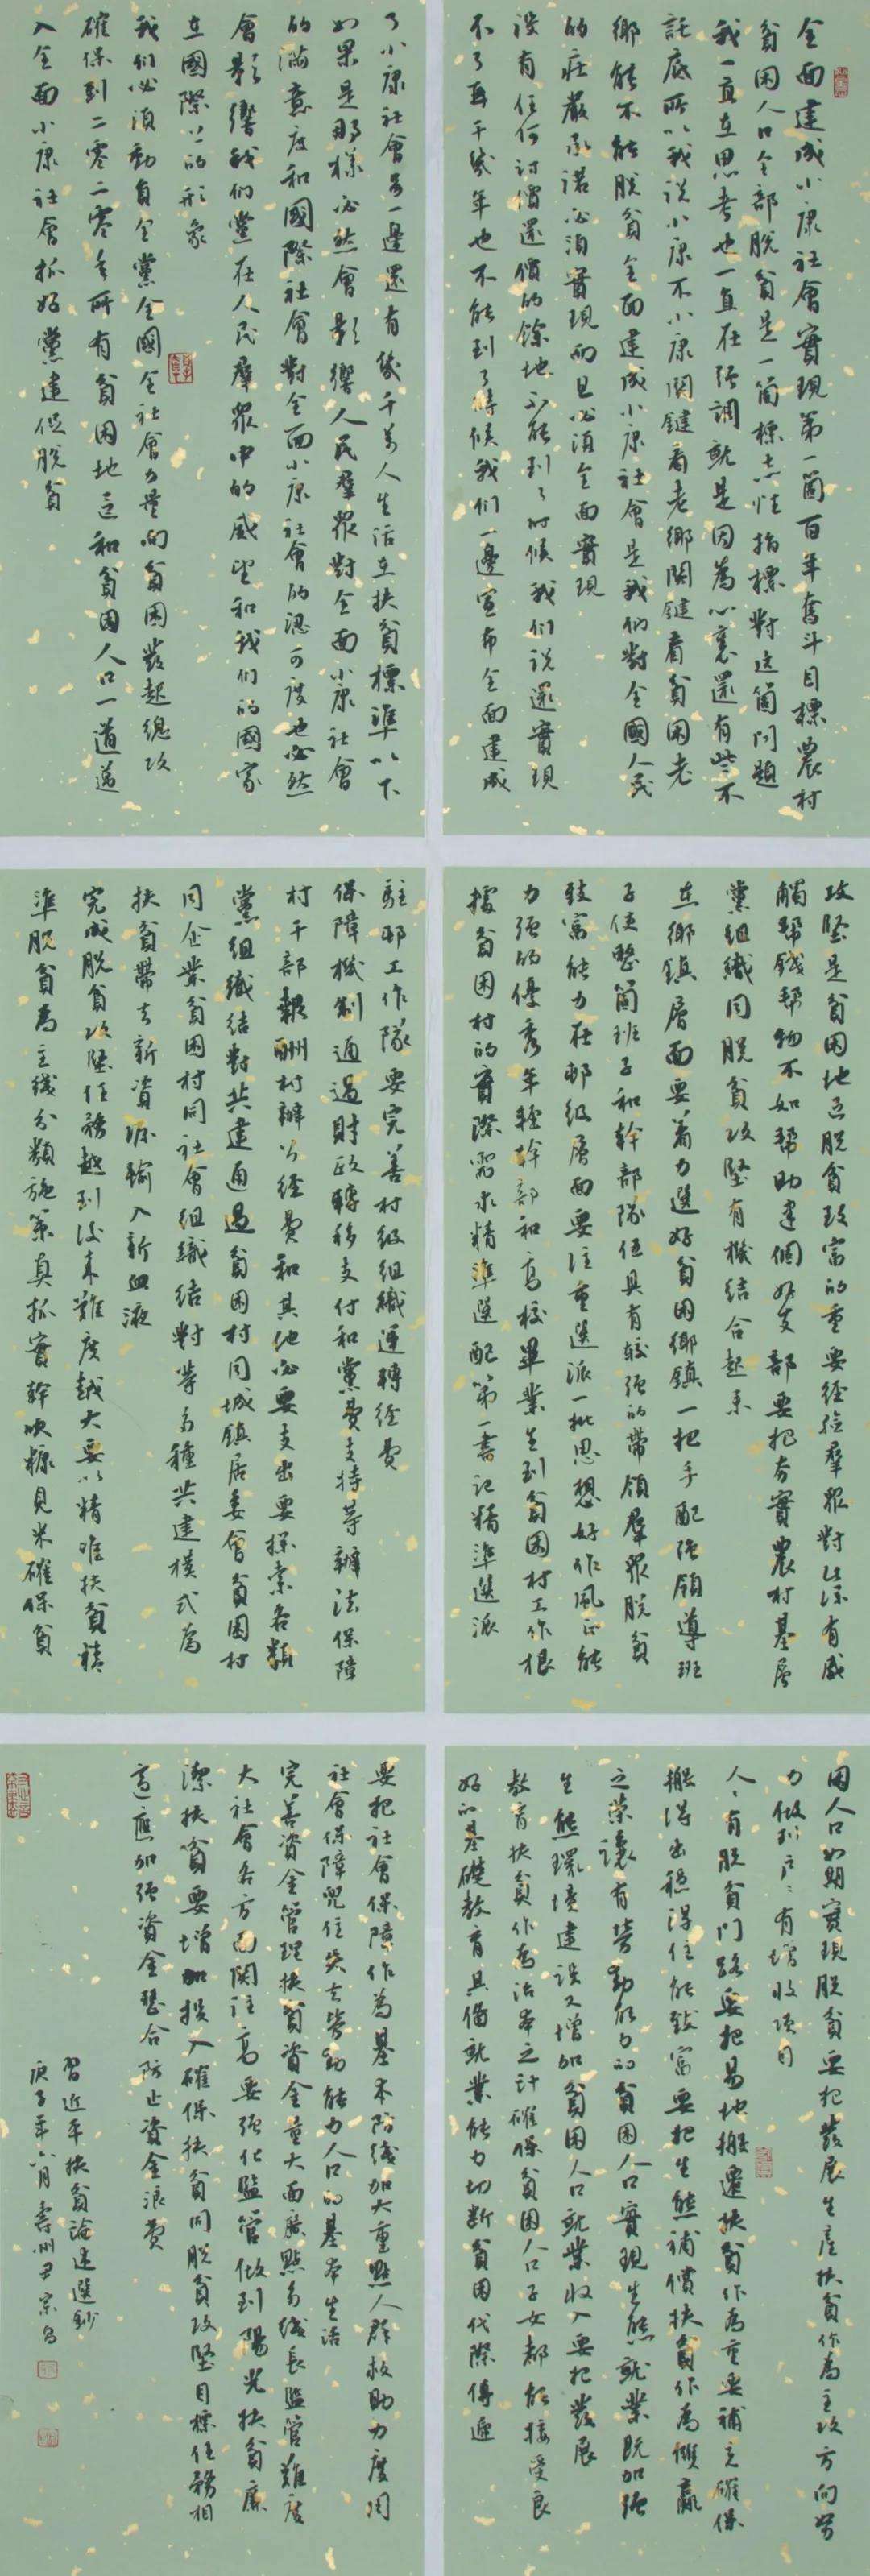 全面建成小康社會實現第一箇百年奮斗目標農村
貧困人口全部脫貧是一箇標志性指標對這箇問題
我一直在思考也一直在强調就是因為心裏還有些不
託底所以我说小康不小康関鍵看老鄉関鍵看貧困老
鄉能不能脫貧全面建成小康社會是我们對全國人民
的莊嚴承诺必須實現而且必須全面實現
没有任何讨價還價的餘地不能到了时候我们说還實現
不了再干幾年也不能到了時候我们一邊宣布全面建成
了小康社會另一邊還有幾千萬人生活在扶貧標準以下
如果是那樣必然會影響人民羣眾對全面小康社會
的滿意度和國際社會對全面小康社會的認可度也必然
會影響我们黨在人民羣眾中的威望和我们的國家
在國際上的形象
我们必須動員全黨全國全社會力量向貧困發起總攻
確保到二零二零年所有貧困地區和貧困人口一道邁
入全面小康社會抓好黨建促脫貧
攻堅是貧困地區脫貧致富的重要經验羣眾對此深有感
觸帮錢帮物不如帮助建個好支部要把夯實農村基層
黨組織同脫貧攻堅有機结合起来
在鄉鎮層面要着力選好貧困鄉鎮一把手配强領導班
子使整箇班子和幹部隊伍具有較强的帶領羣眾脫貧
致富能力在邨级層面要注重選派一批思想好作風正能
力强的優秀年輕幹部和高校畢業生到貧困村工作根
據貧困村的實際需求精準選配第一書记精準選派
駐邨工作隊要完善村级組織運轉经費
保障機制通過財政轉移支付和黨費支持等辦法保障
村干部報酬村辦公经費和其他必要支出要探索各類
黨組織结對共建通過貧困村同城鎮居委會貧困村
同企業貧困村同社會組織结對等多種共建模式為
扶貧帶去新資源輸入新血液
完成脫貧攻堅任務越到後来難度越大要以精准扶貧精
準脫貧為主綫分類施策真抓實幹吹糠見米確保貧
困人口如期實現脫貧要把發展生産扶貧作為主攻方向努
力做到户々有增收项目
人々有脫貧门路要把易地搬遷扶貧作為重要補充確保
搬得出穩得住能致富要把生態補償扶貧作為雙贏
之策讓有勞動能力的貧困人口實現生態就業既加强
生態環境建设又增加貧困人口就業收入要把發展
教育扶貧作為治本之計確保貧困人口子女都能接受良
好的基礎教育具備就業能力切断貧困代際傳遞
要把社會保障作為基本防綫加大重點人群救助力度用
社會保障兜住失去勞動能力人口的基本生活
完善資金管理扶貧資金量大面廣點多綫長監管難度
大社會各方面関注高要强化監管做到陽光扶貧廉
潔扶貧要增加投入確保扶貧同脫貧攻堅目標任務相
適應加强資金整合防止資金浪費
習近平扶貧論述選鈔
庚子年六月壽州尹宗昌